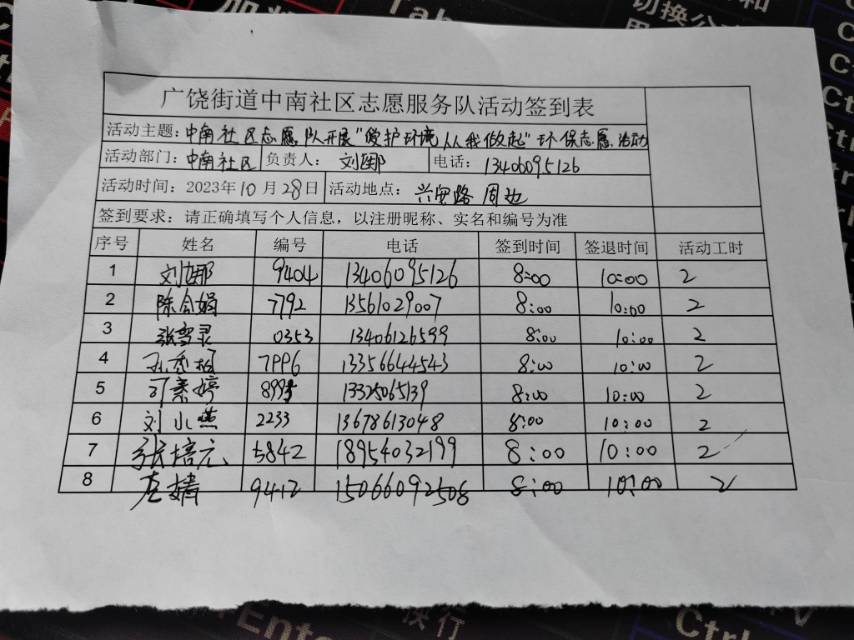 切换公 和
加粗
Tab
Ct
广饶街道中南社区志愿服务队活动签到表
活动主题：中南社区志愿队开展"爱护环境从我做起"环保志愿活动
活动部门：中南社区 负责人：刘娜 电话：13406095126
活动时间：2023年10月28日 活动地点：兴安路周边
签到要求：请正确填写个人信息，以注册昵称、实名和编号为准
序号 姓名 编号 电话 签到时间 签退时间 活动工时
1 刘娜 9404 13406095126 8:00 10:00 2
2 陈会娟 7792 13561029007 8:00 10:00 2
3 张雪灵 0353 13406126599 8:00 10:00 2
4 7996 13356644543 8:00 10:00 2
5 素婷 8995 13325065139 8:00 10:00 2
6 刘小燕 2233 13678613048 8:00 10:00 2
7 张培元 5842 18954032199 8:00 10:00 2
8 婧 9412 15066092508 8:00 10:00 2
Enter 换行 Ctrl